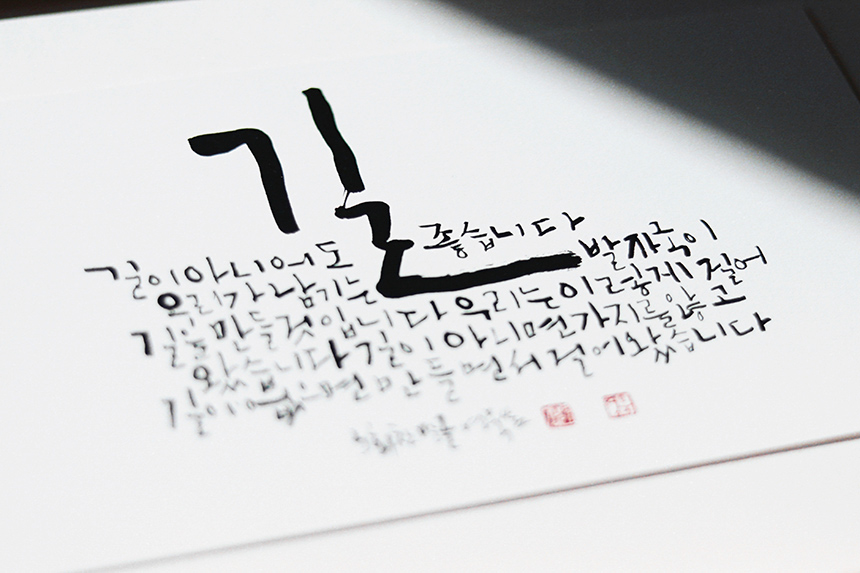 길
길이아니어도 좋습니다
우리가 남기는 발자국이
길을 만들것입니다 우리는 이렇게 걸어
왔습니다 길이 아니면 가지를 않고
길이 없으면 만들면서 걸어왔습니다